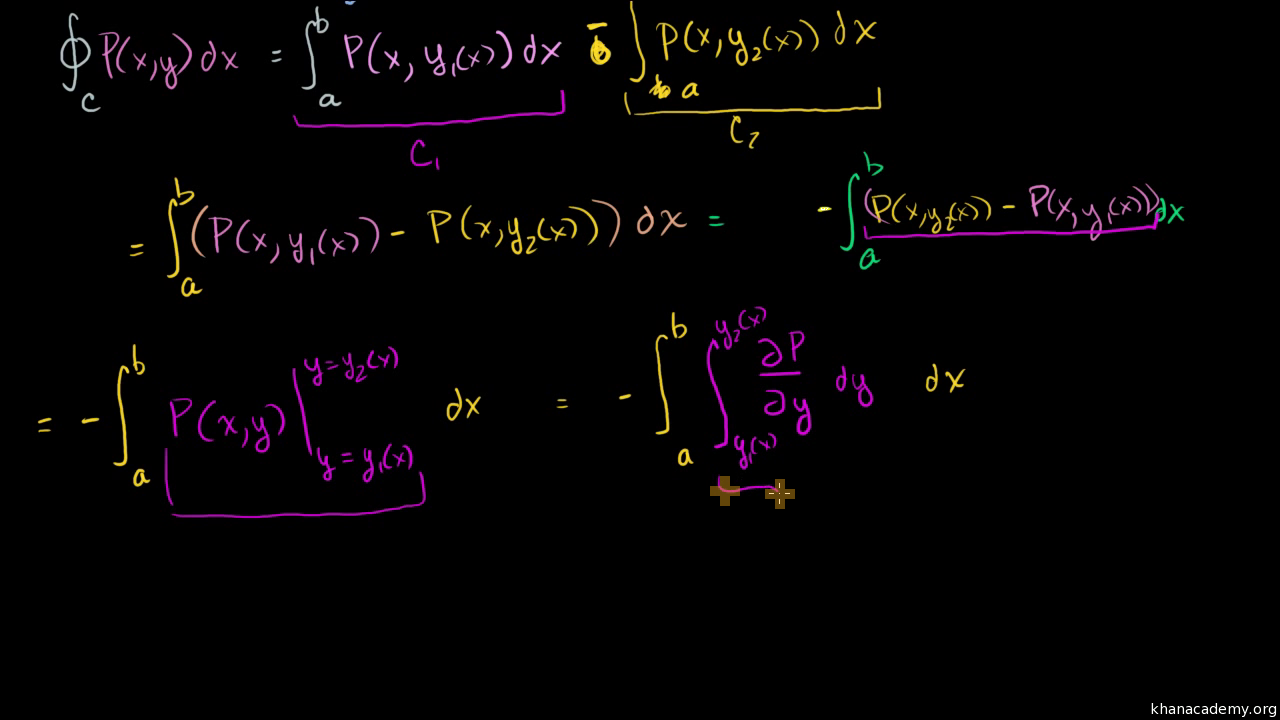 ∮_C P(x,y) dx = ∫_a^b P(x, y₁(x)) dx - ∫_a P(x, y₂(x)) dx
C₁ C₂
= ∫_a^b (P(x, y₁(x)) - P(x, y₂(x))) dx = - ∫_a^b (P(x, y₂(x)) - P(x, y₁(x))) dx
= - ∫_a^b P(x,y) |_{y=y₁(x)}^{y=y₂(x)} dx = - ∫_a^b ∫_{y₁(x)}^{y₂(x)} ∂P/∂y dy dx
khanacademy.org